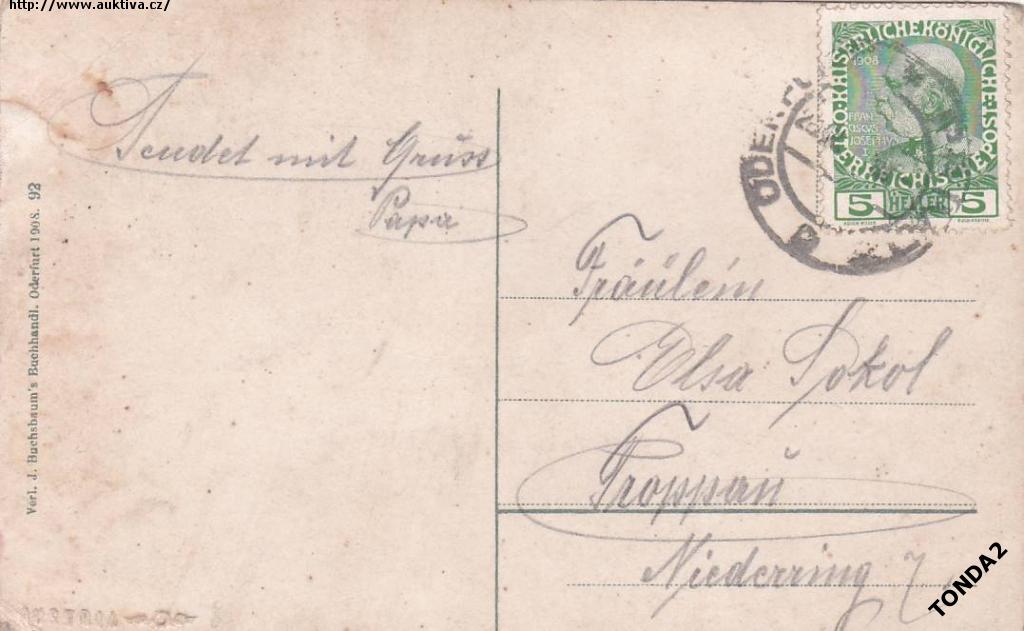 http://www.auktiva.cz/
Sendet mit Gruss
Papa
Verl. J. Buchsbaum's Buchhandl. Oderfurt 1908. 92
KAISERLICHE KÖNIGLICHE
ÖSTERREICHISCHE POST
1908
FRAN
CISCVS
JOSEPHVS
I
5 HELLER 5
ODERFU
Fräulein
Elsa Sokol
Troppau
Niederring 7
TONDA2